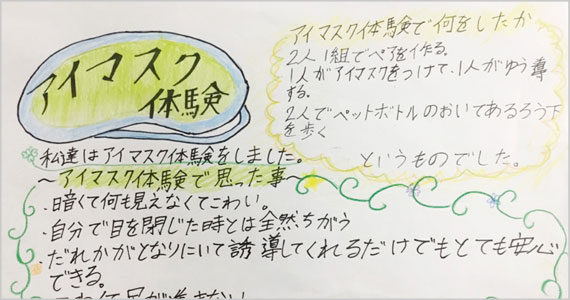 アイマスク
体験
アイマスク体験で何をしたか
2人1組でペアを作る。
1人がアイマスクをつけて、1人がゆう導
する。
2人でペットボトルのおいてあるろう下
を歩く
というものでした。
私達はアイマスク体験をしました。
~アイマスク体験で思った事~
・暗くて何も見えなくてこわい。
・自分で目を閉じた時とは全然ちがう
・だれかがとなりにいて誘導してくれるだけでもとても安心
できる。